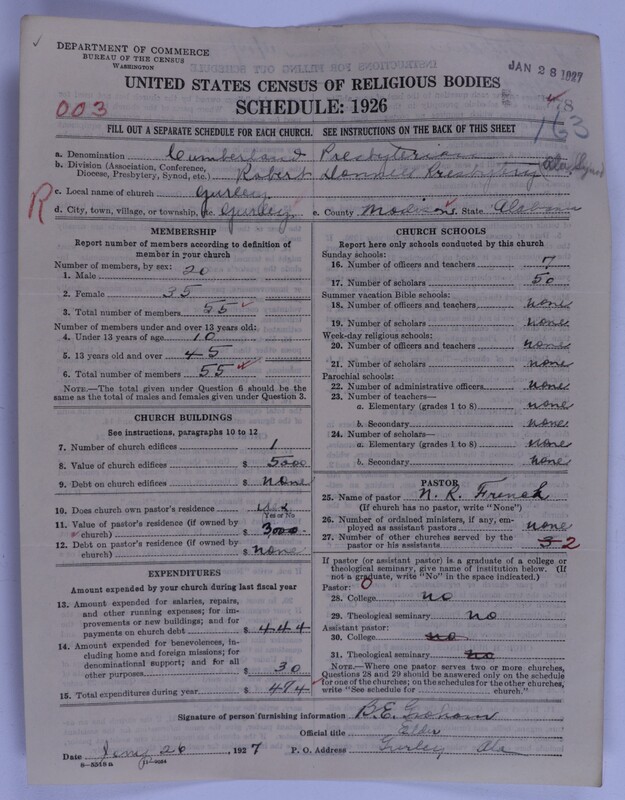 DEPARTMENT OF COMMERCE
BUREAU OF THE CENSUS
WASHINGTON
JAN 28 1927
UNITED STATES CENSUS OF RELIGIOUS BODIES
SCHEDULE: 1926
003
163
FILL OUT A SEPARATE SCHEDULE FOR EACH CHURCH. SEE INSTRUCTIONS ON THE BACK OF THIS SHEET
a. Denomination Cumberland Presbyterian
b. Division (Association, Conference, Diocese, Presbytery, Synod, etc.) Robert Donnell Presbytery Ala Synod
R
c. Local name of church Gurley
d. City, town, village, or township, etc. Gurley e. County Madison State Alabama
MEMBERSHIP
Report number of members according to definition of member in your church
Number of members, by sex:
1. Male 20
2. Female 35
3. Total number of members 55
Number of members under and over 13 years old:
4. Under 13 years of age 10
5. 13 years old and over 45
6. Total number of members 55
NOTE.—The total given under Question 6 should be the same as the total of males and females given under Question 3.
CHURCH BUILDINGS
See instructions, paragraphs 10 to 12
7. Number of church edifices 1
8. Value of church edifices $ 5000
9. Debt on church edifices $ None
10. Does church own pastor's residence yes
Yes or No
11. Value of pastor's residence (if owned by church) $ 3000
12. Debt on pastor's residence (if owned by church) $ none
EXPENDITURES
Amount expended by your church during last fiscal year
13. Amount expended for salaries, repairs, and other running expenses; for improvements or new buildings; and for payments on church debt $ 444
14. Amount expended for benevolences, including home and foreign missions; for denominational support; and for all other purposes $ 30
15. Total expenditures during year $ 474
CHURCH SCHOOLS
Report here only schools conducted by this church
Sunday schools:
16. Number of officers and teachers 7
17. Number of scholars 50
Summer vacation Bible schools:
18. Number of officers and teachers none
19. Number of scholars none
Week-day religious schools:
20. Number of officers and teachers none
21. Number of scholars none
Parochial schools:
22. Number of administrative officers none
23. Number of teachers—
a. Elementary (grades 1 to 8) none
b. Secondary none
24. Number of scholars—
a. Elementary (grades 1 to 8) none
b. Secondary none
PASTOR
25. Name of pastor N. K. French
(If church has no pastor, write "None")
26. Number of ordained ministers, if any, employed as assistant pastors none
27. Number of other churches served by the pastor or his assistants 3 2
If pastor (or assistant pastor) is a graduate of a college or theological seminary, give name of institution below. (If not a graduate, write "No" in the space indicated.)
Pastor: 0
28. College no
29. Theological seminary no
Assistant pastor:
30. College no
31. Theological seminary no
NOTE.—Where one pastor serves two or more churches, Questions 28 and 29 should be answered only on the schedule for one of the churches; on the schedules for the other churches, write "See schedule for church."
Signature of person furnishing information B.E. Graham
Official title Elder
Date Jany 26, 1927 P. O. Address Gurley Ala